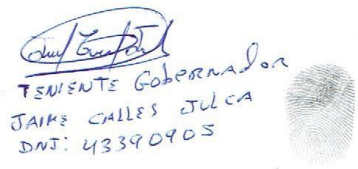 TENIENTE GobERNAdor
JAIME CALLES JULCA
DNI: 43390905